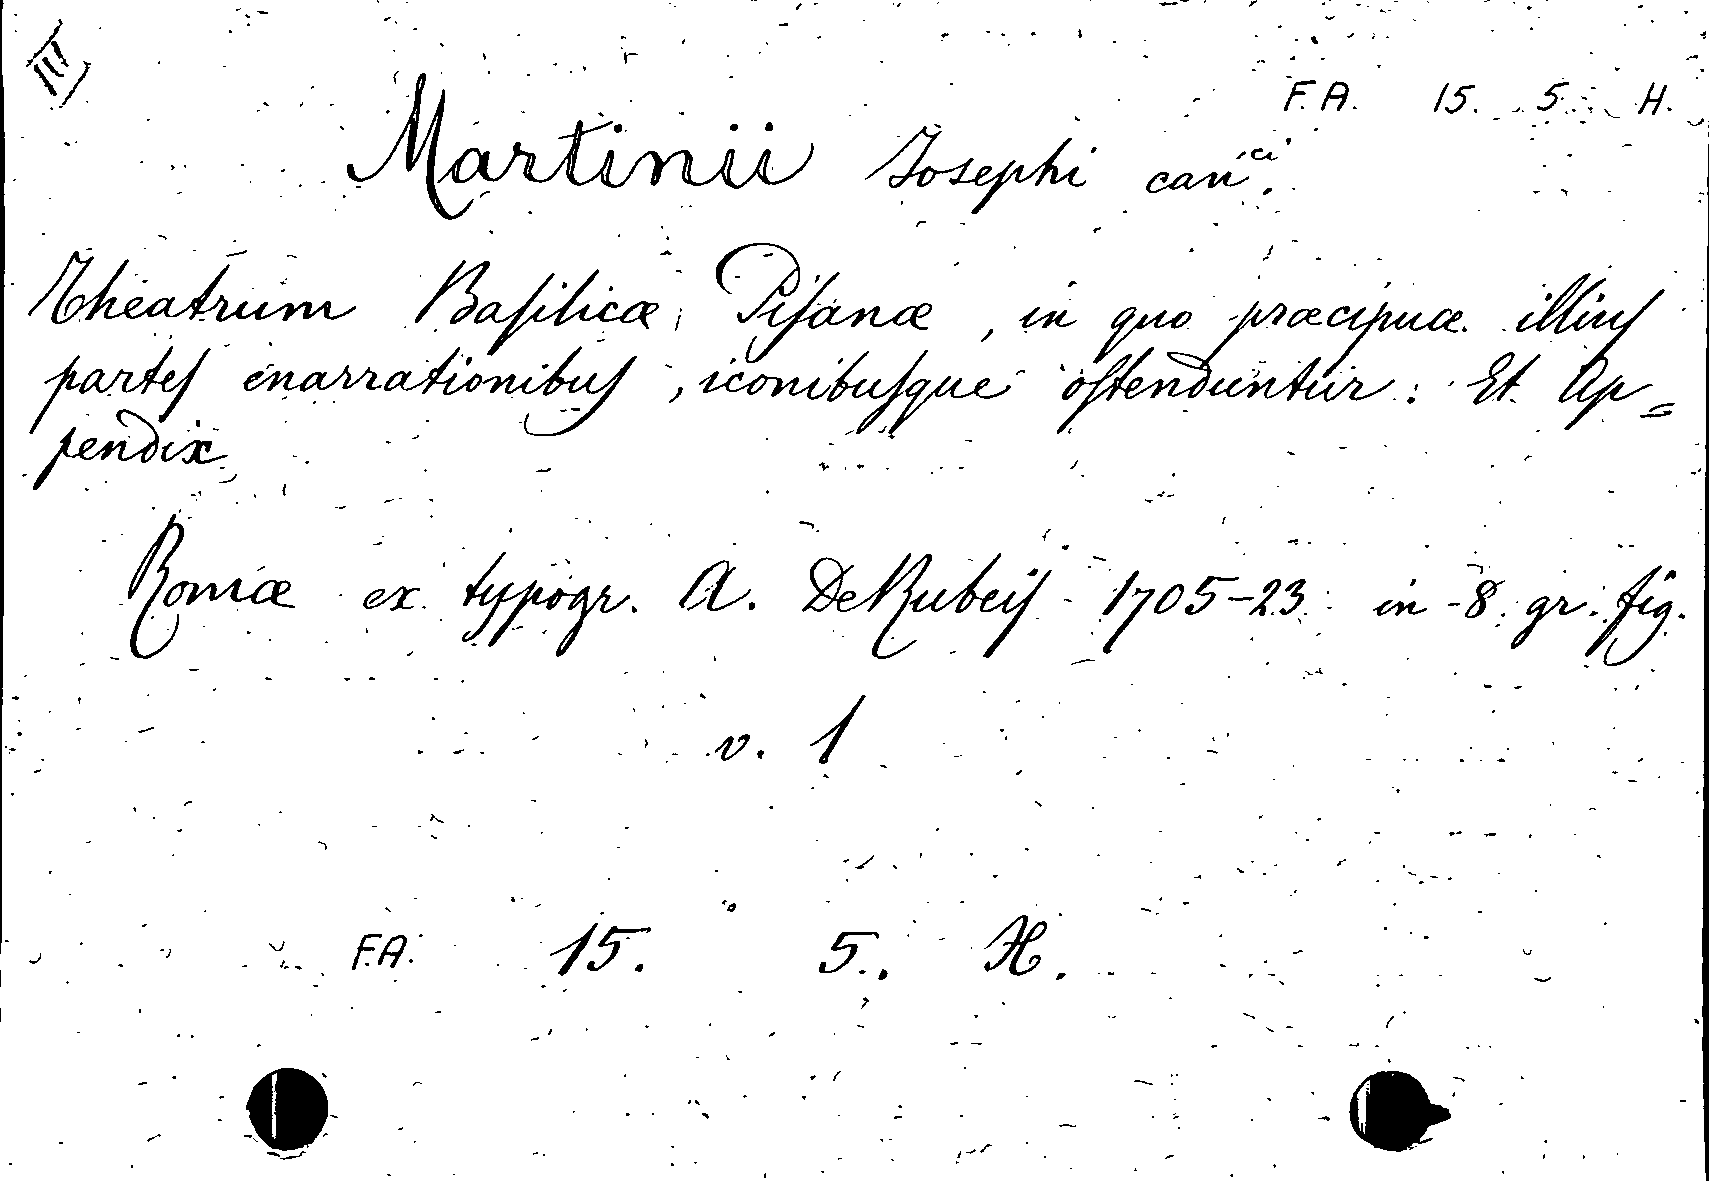 III
F.A. 15. 5. H.
Martinii Josephi can.ci
Theatrum Basilicæ Pisanæ, in quo præcipuæ illius
partes enarrationibus, iconibusque ostenduntur: Et Ap=
pendix
Romæ ex typogr. A. De Rubeis 1705-23 in-8. gr. fig.
v. 1
F.A. 15. 5. H.